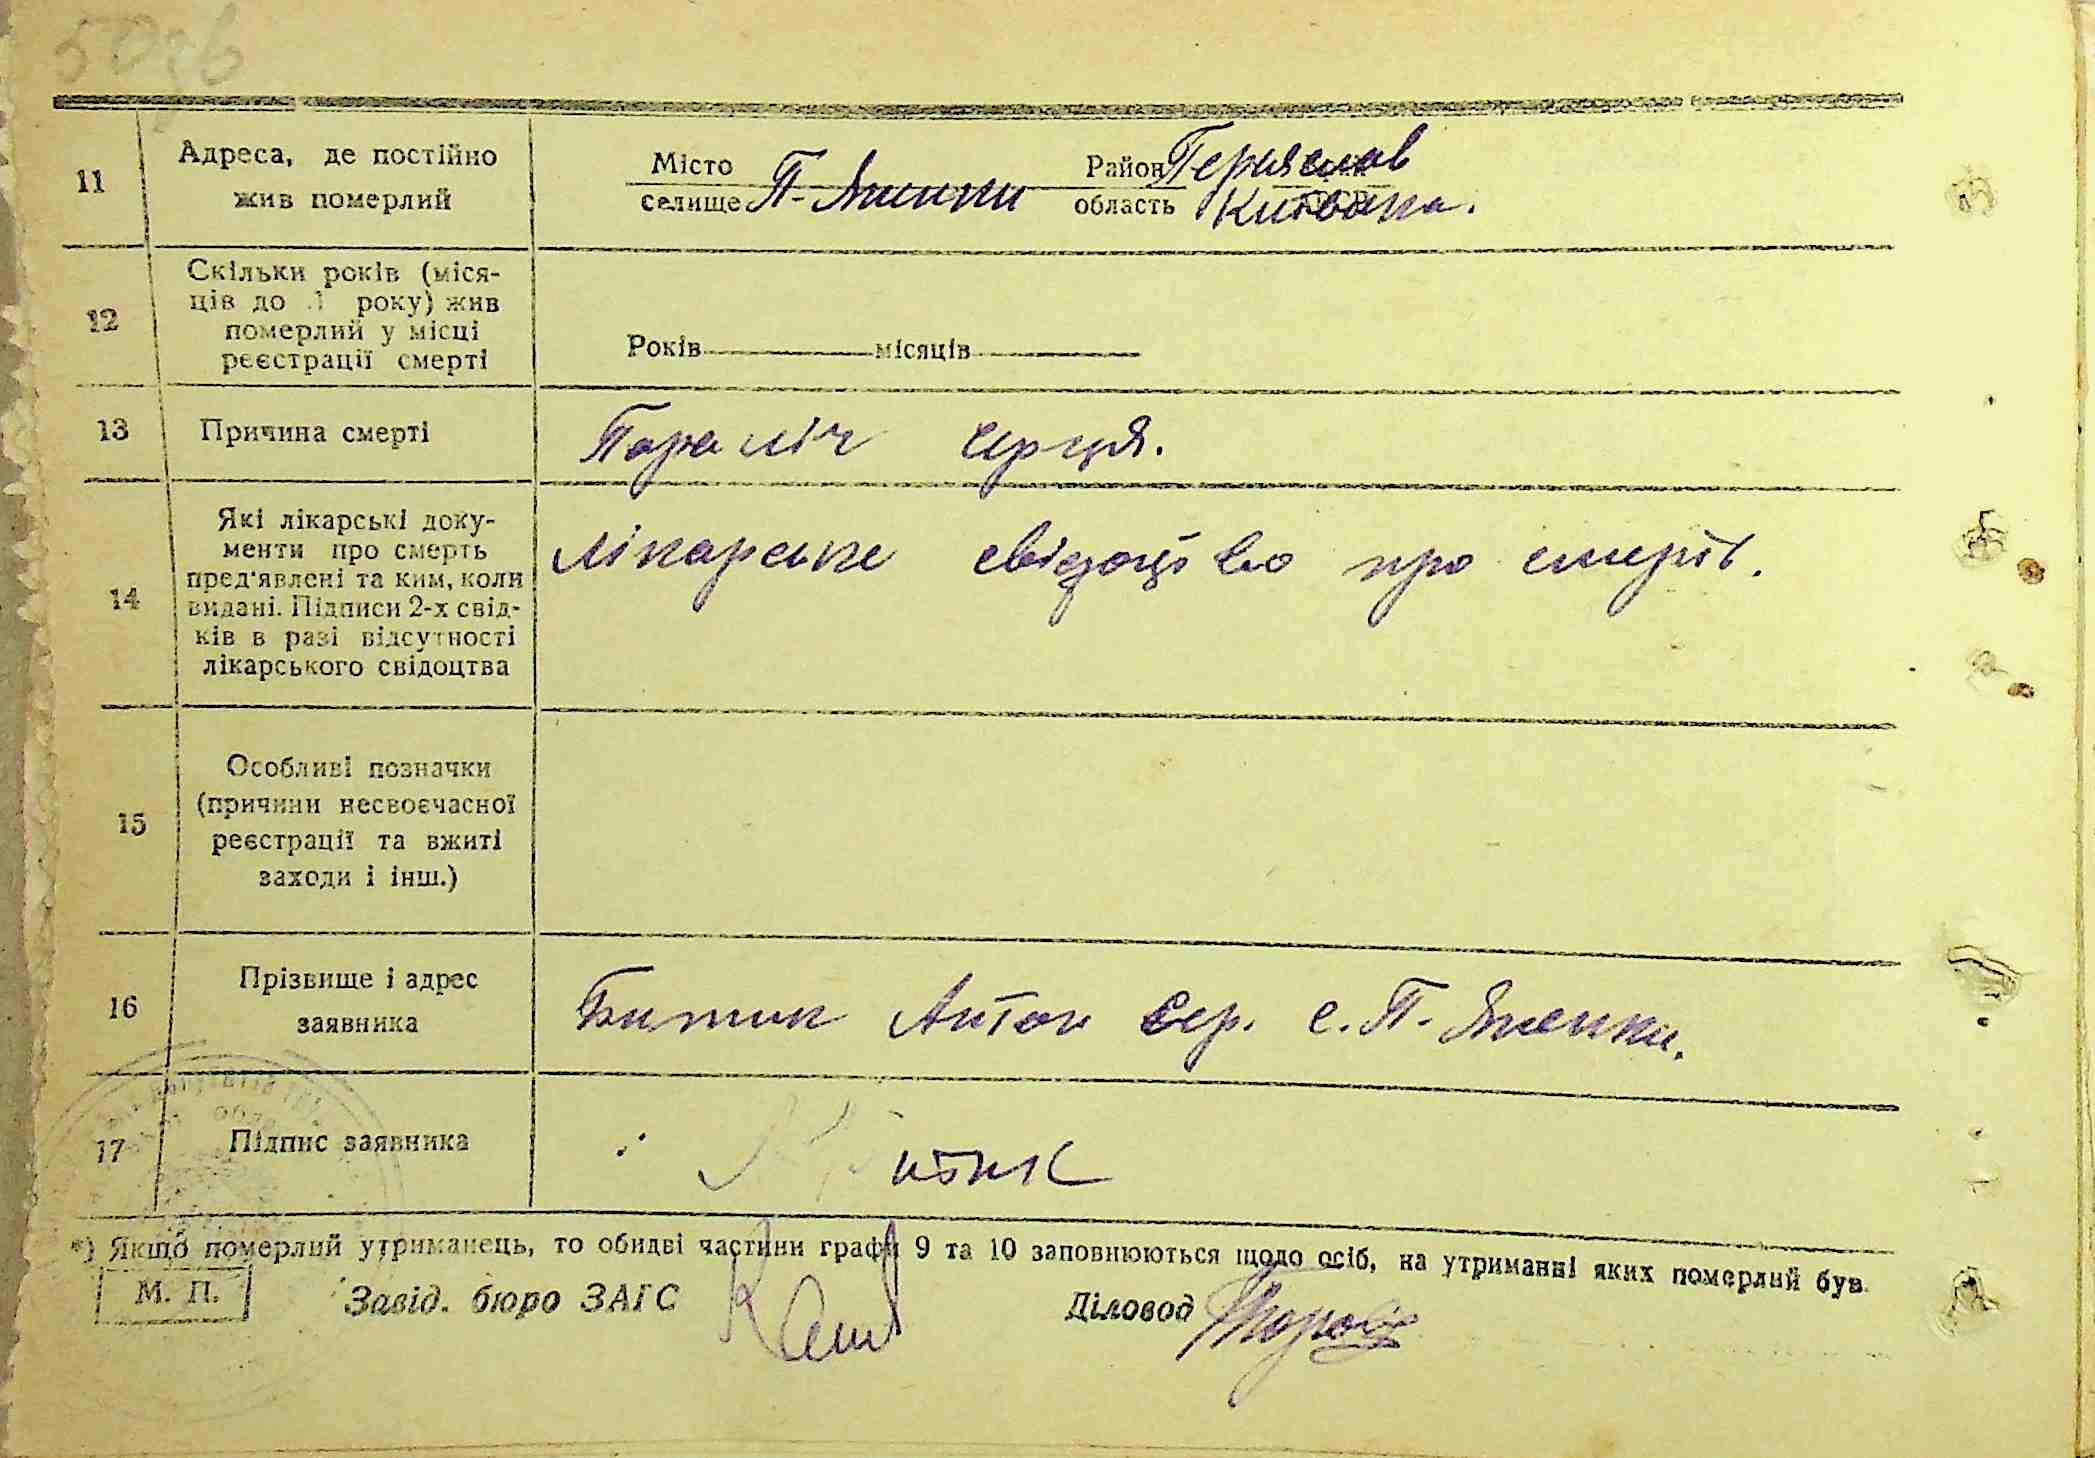 50зв
11
Адреса, де постійно
жив померлий
Місто
селище П-Яненки
Район Переяслав
область Київська.
12
Скільки років (міся-
ців до 1 року) жив
померлий у місці
реєстрації смерті
Років місяців
13
Причина смерті
Пораліч серця.
14
Які лікарські доку-
менти про смерть
пред'явлені та ким, коли
видані. Підписи 2-х свід-
ків в разі відсутності
лікарського свідоцтва
Лікарське свідоцтво про смерть.
15
Особливі позначки
(причини несвоєчасної
реєстрації та вжиті
заходи і інш.)
16
Прізвище і адрес
заявника
Битик Антон Сер. с. П-Яненки.
17
Підпис заявника
Битик
*) Якщо померлий утриманець, то обидві частини графи 9 та 10 заповнюються щодо осіб, на утриманні яких померлий був.
М. П.
Завід. бюро ЗАГС
Діловод